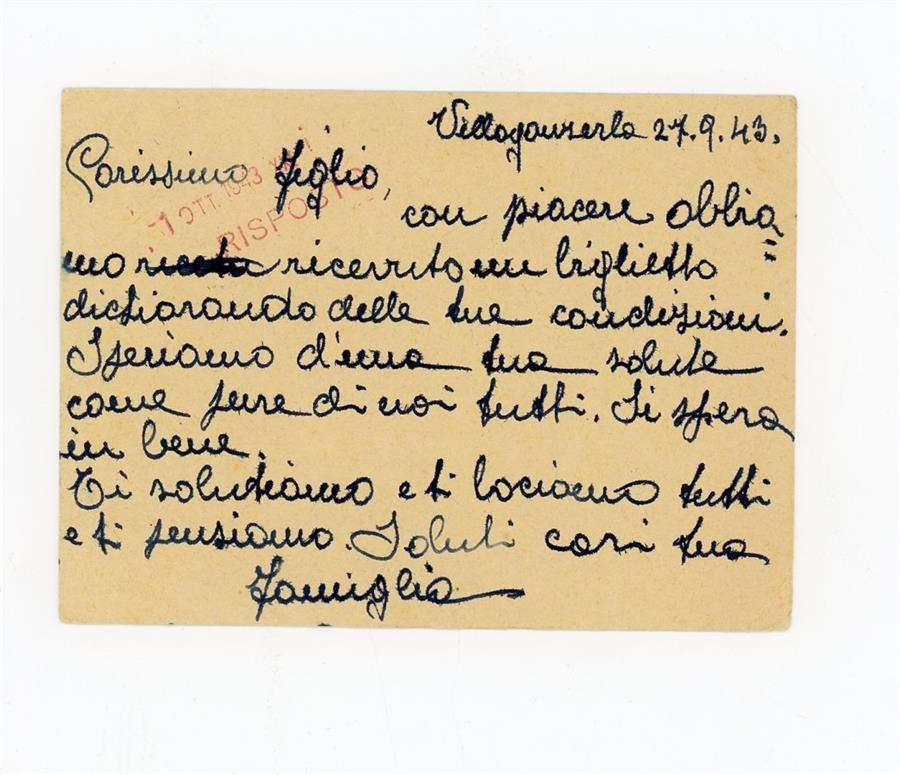 Villaganzerla 27.9.43.
Carissimo figlio,
1 OTT. 1943
RISPOSTO
con piacere abbia
mo ricevuto un biglietto
dichiarando delle tue condizioni.
Speriamo d'una tua salute
come pure di noi tutti. Si spera
in bene.
Ti salutiamo e ti baciamo tutti
e ti pensiamo. Saluti cari tua
famiglia